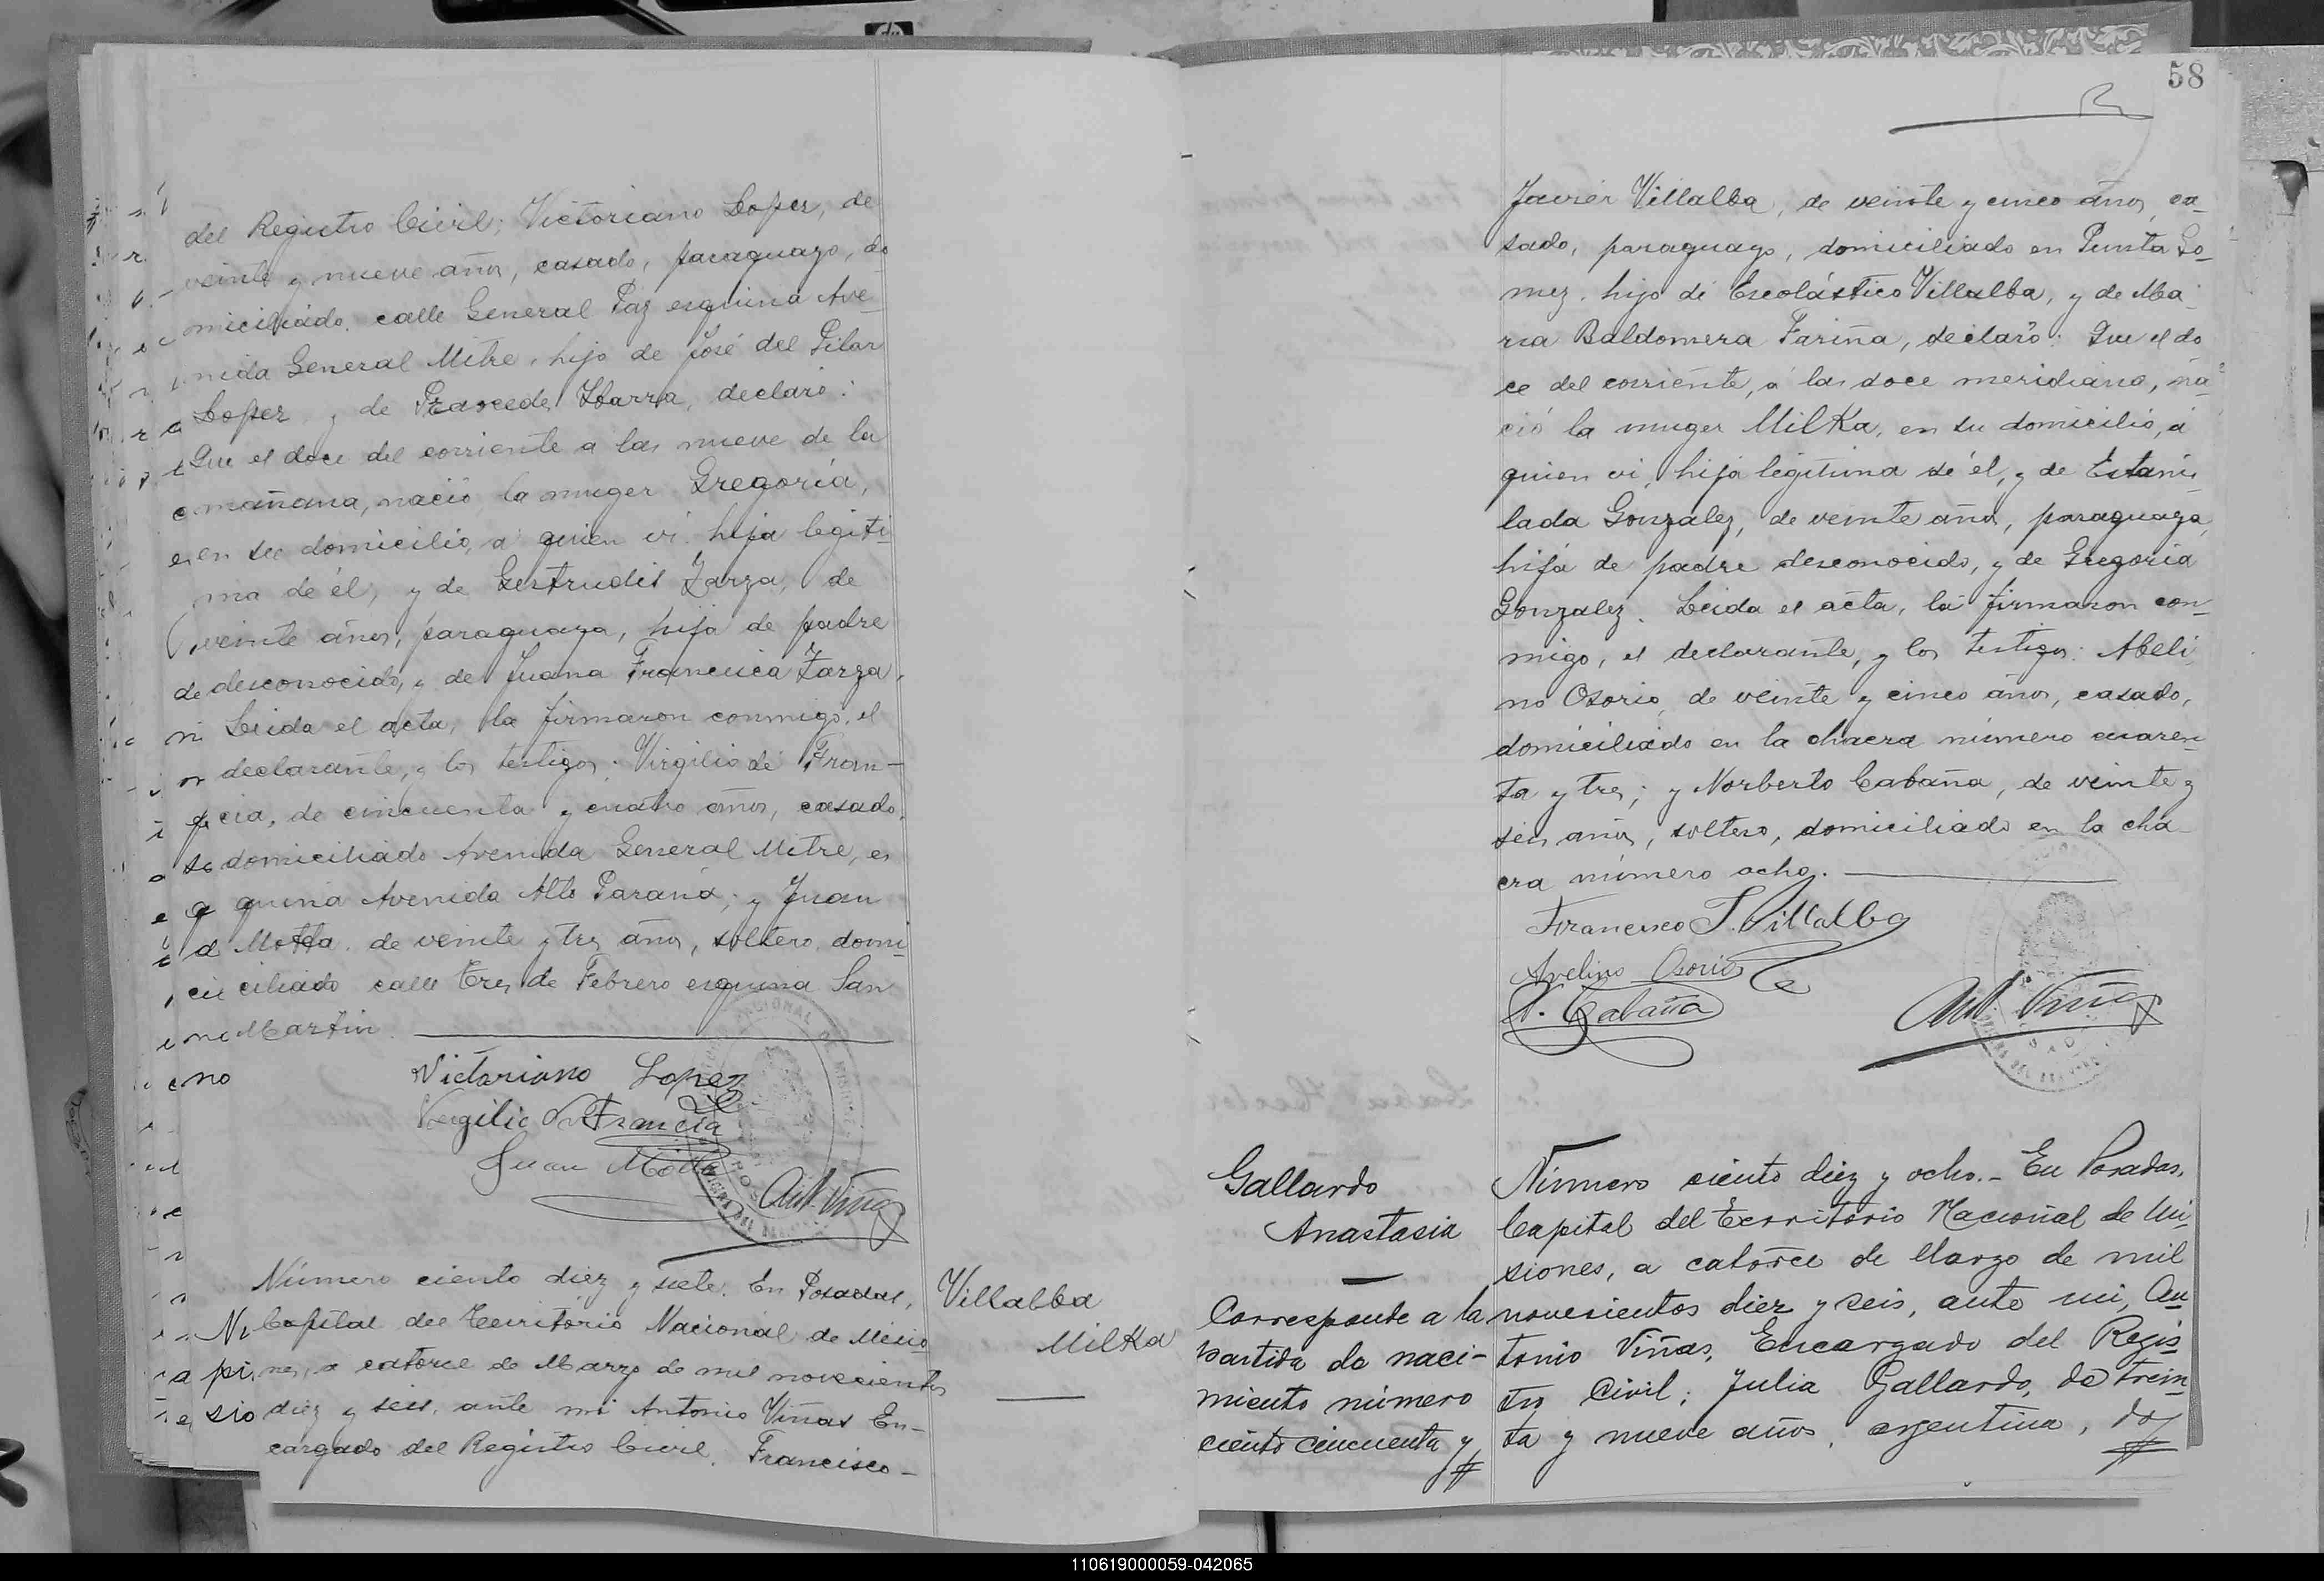 del Registro Civil; Victoriano Lopez, de
veinte y nueve años, casado, paraguayo, do
miciliado, calle General Paz esquina Ave
nida General Mitre, hijo de José del Pilar
Lopez y de Praxcedes Ibarra, declaró:
Que el doce del corriente a las nueve de la
mañana, nació la muger Gregoria,
en su domicilio, a quien vi, hija legiti
ma de él, y de Gertrudis Zarza, de
veinte años, paraguaya, hija de padre
desconocido, y de Juana Francisca Zarza,
Leida el acta, la firmaron conmigo, el
declarante, y los testigos: Virgilio de Fran-
cia, de cincuenta y cuatro años, casado,
domiciliado Avenida General Mitre, es
quina Avenida Alto Paraná; y Juan
Motta, de veinte y tres años, soltero, domi
ciliado calle Tres de Febrero esquina San
Martin.
Victoriano Lopez
Virgilio de Francia
Juan Motta
Ant. Viñas
Número ciento diez y siete. En Posadas,
Capital del Territorio Nacional de Misio
nes, a catorce de Marzo de mil novecientos
diez y seis, ante mi Antonio Viñas En-
cargado del Registro Civil, Francisco-
Villalba
Milka
58
Javier Villalba, de veinte y cinco años, ca-
sado, paraguayo, domiciliado en Punta Go-
mez, hijo de Escolástico Villalba, y de Ma
ria Baldomera Fariña, declaró: Que el do
ce del corriente, á las doce meridiano, na-
ció la muger Milka, en su domicilio, á
quien vi, hija legitima de él, y de Estanis
lada Gonzalez, de veinte años, paraguaya,
hija de padre desconocido, y de Gregoria
Gonzalez. Leida el acta, la firmaron con-
migo, el declarante, y los testigos: Abeli
no Osorio, de veinte y cinco años, casado,
domiciliado en la chacra número cuaren-
ta y tres; y Norberto Cabaña, de veinte y
seis años, soltero, domiciliado en la cha
cra número ocho.
Francisco J. Villalba
Avelino Osorio
N. Cabaña
Ant. Viñas
Gallardo
Anastasia
Corresponde a la
partida de naci-
miento número
ciento cincuenta y
Número ciento diez y ocho.- En Posadas,
Capital del Territorio Nacional de Mi
siones, a catorce de Marzo de mil
novecientos diez y seis, ante mi, An
tonio Viñas, Encargado del Regis
tro Civil; Julia Gallardo, de trein
ta y nueve años, argentina, do
110619000059-042065